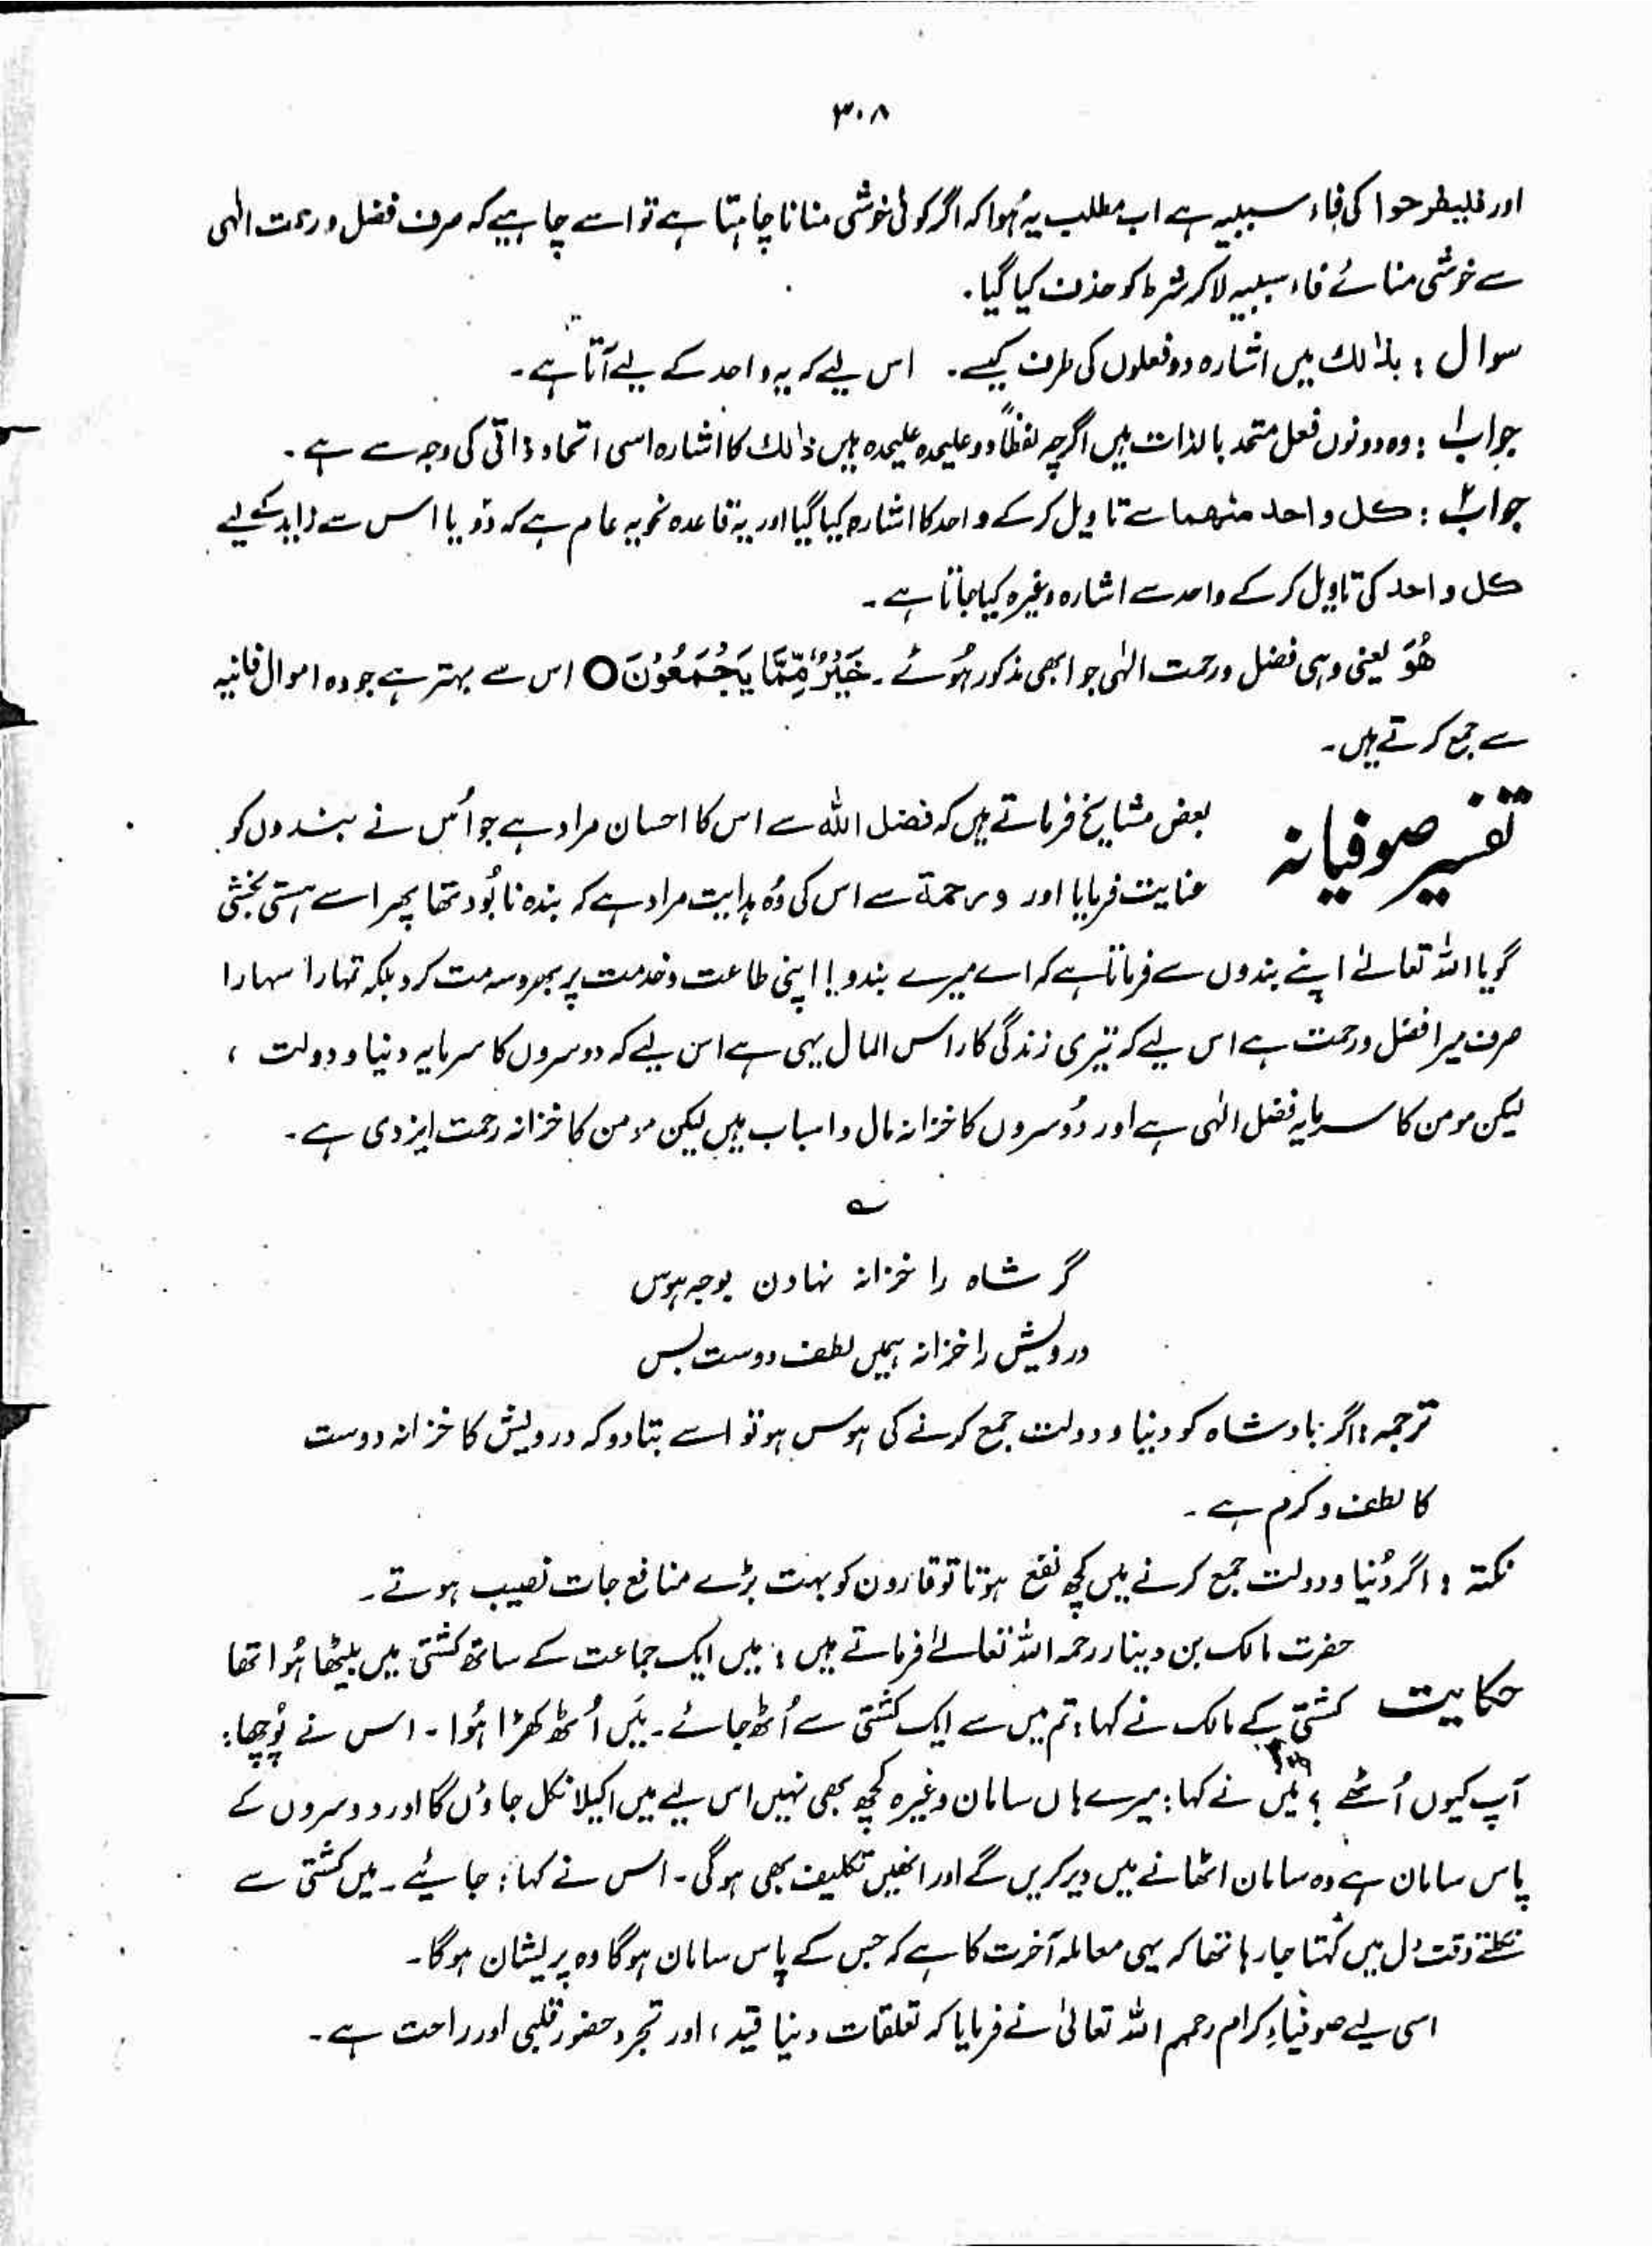 ۳۰۸
اور فلیفرحوا کی فاء سببیہ ہے اب مطلب یہ ہُوا کہ اگر کوئی خوشی منانا چاہتا ہے تو اسے چاہیے کہ صرف فضل و رحمت الٰہی
سے خوشی منائے فاء سببیہ لا کر شرط کو حذف کیا گیا۔
سوال : بذٰالک میں اشارہ دو فعلوں کی طرف کیسے۔ اس لیے کہ یہ واحد کے لیے آتا ہے۔
جواب۱ : وہ دونوں فعل متحد بالذات ہیں اگرچہ لفظاً دو علیحدہ علیحدہ ہیں ذٰالک کا اشارہ اسی اتحاد ذاتی کی وجہ سے ہے۔
جواب۲ : کل واحد منھما سے تاویل کر کے واحد کا اشارہ کیا گیا اور یہ قاعدہ نحویہ عام ہے کہ دو یا اس سے زاید کے لیے
کل واحد کی تاویل کر کے واحد سے اشارہ وغیرہ کیا جاتا ہے۔
ھُوَ یعنی وہی فضل و رحمت الٰہی جو ابھی مذکور ہُوئے۔ خَیْرٌ مِّمَّا یَجْمَعُوْنَ ○ اس سے بہتر ہے جو وہ اموال فانیہ
سے جمع کرتے ہیں۔
تفسیر صوفیانہ بعض مشایخ فرماتے ہیں کہ فضل اللہ سے اس کا احسان مراد ہے جو اُس نے بندوں کو
عنایت فرمایا اور ورحمة سے اس کی وُہ ہدایت مراد ہے کہ بندہ نابُود تھا پھر اسے ہستی بخشی
گویا اللہ تعالےٰ اپنے بندوں سے فرماتا ہے کہ اے میرے بندو! اپنی طاعت و خدمت پر بھروسہ مت کرو بلکہ تمہارا سہارا
صرف میرا فضل و رحمت ہے اس لیے کہ تیری زندگی کا راس المال یہی ہے اس لیے کہ دوسروں کا سرمایہ دنیا و دولت ،
لیکن مومن کا سرمایہ فضل الٰہی ہے اور دُوسروں کا خزانہ مال و اسباب ہیں لیکن مومن کا خزانہ رحمت ایزدی ہے۔
؎
گر شاہ را خزانہ نہادن بوجہ ہوس
درویش را خزانہ ہمیں لطف دوست بس
ترجمہ : اگر بادشاہ کو دنیا و دولت جمع کرنے کی ہوس ہو تو اسے بتا دو کہ درویش کا خزانہ دوست
کا لطف و کرم ہے۔
نکتہ : اگر دُنیا و دولت جمع کرنے میں کچھ نفع ہوتا تو قارون کو بہت بڑے منافع جات نصیب ہوتے۔
حضرت مالک بن دینار رحمہ اللہ تعالےٰ فرماتے ہیں : میں ایک جماعت کے ساتھ کشتی میں بیٹھا ہُوا تھا
حکایت کشتی کے مالک نے کہا : تم میں سے ایک کشتی سے اُٹھ جائے۔ میَں اُٹھ کھڑا ہُوا۔ اس نے پُوچھا :
آپ کیوں اُٹھے ؟ میَں نے کہا : میرے ہاں سامان وغیرہ کچھ بھی نہیں اس لیے میں اکیلا نکل جاؤں گا اور دوسروں کے
پاس سامان ہے وہ سامان اٹھانے میں دیر کریں گے اور انھیں تکلیف بھی ہوگی۔ اس نے کہا : جایئے۔ میں کشتی سے
نکلتے وقت دل میں کہتا جا رہا تھا کہ یہی معاملہ آخرت کا ہے کہ جس کے پاس سامان ہوگا وہ پریشان ہوگا۔
اسی لیے صوفیاءِ کرام رحمہم اللہ تعالیٰ نے فرمایا کہ تعلقات دنیا قید ، اور تجرد حضور قلبی اور راحت ہے۔